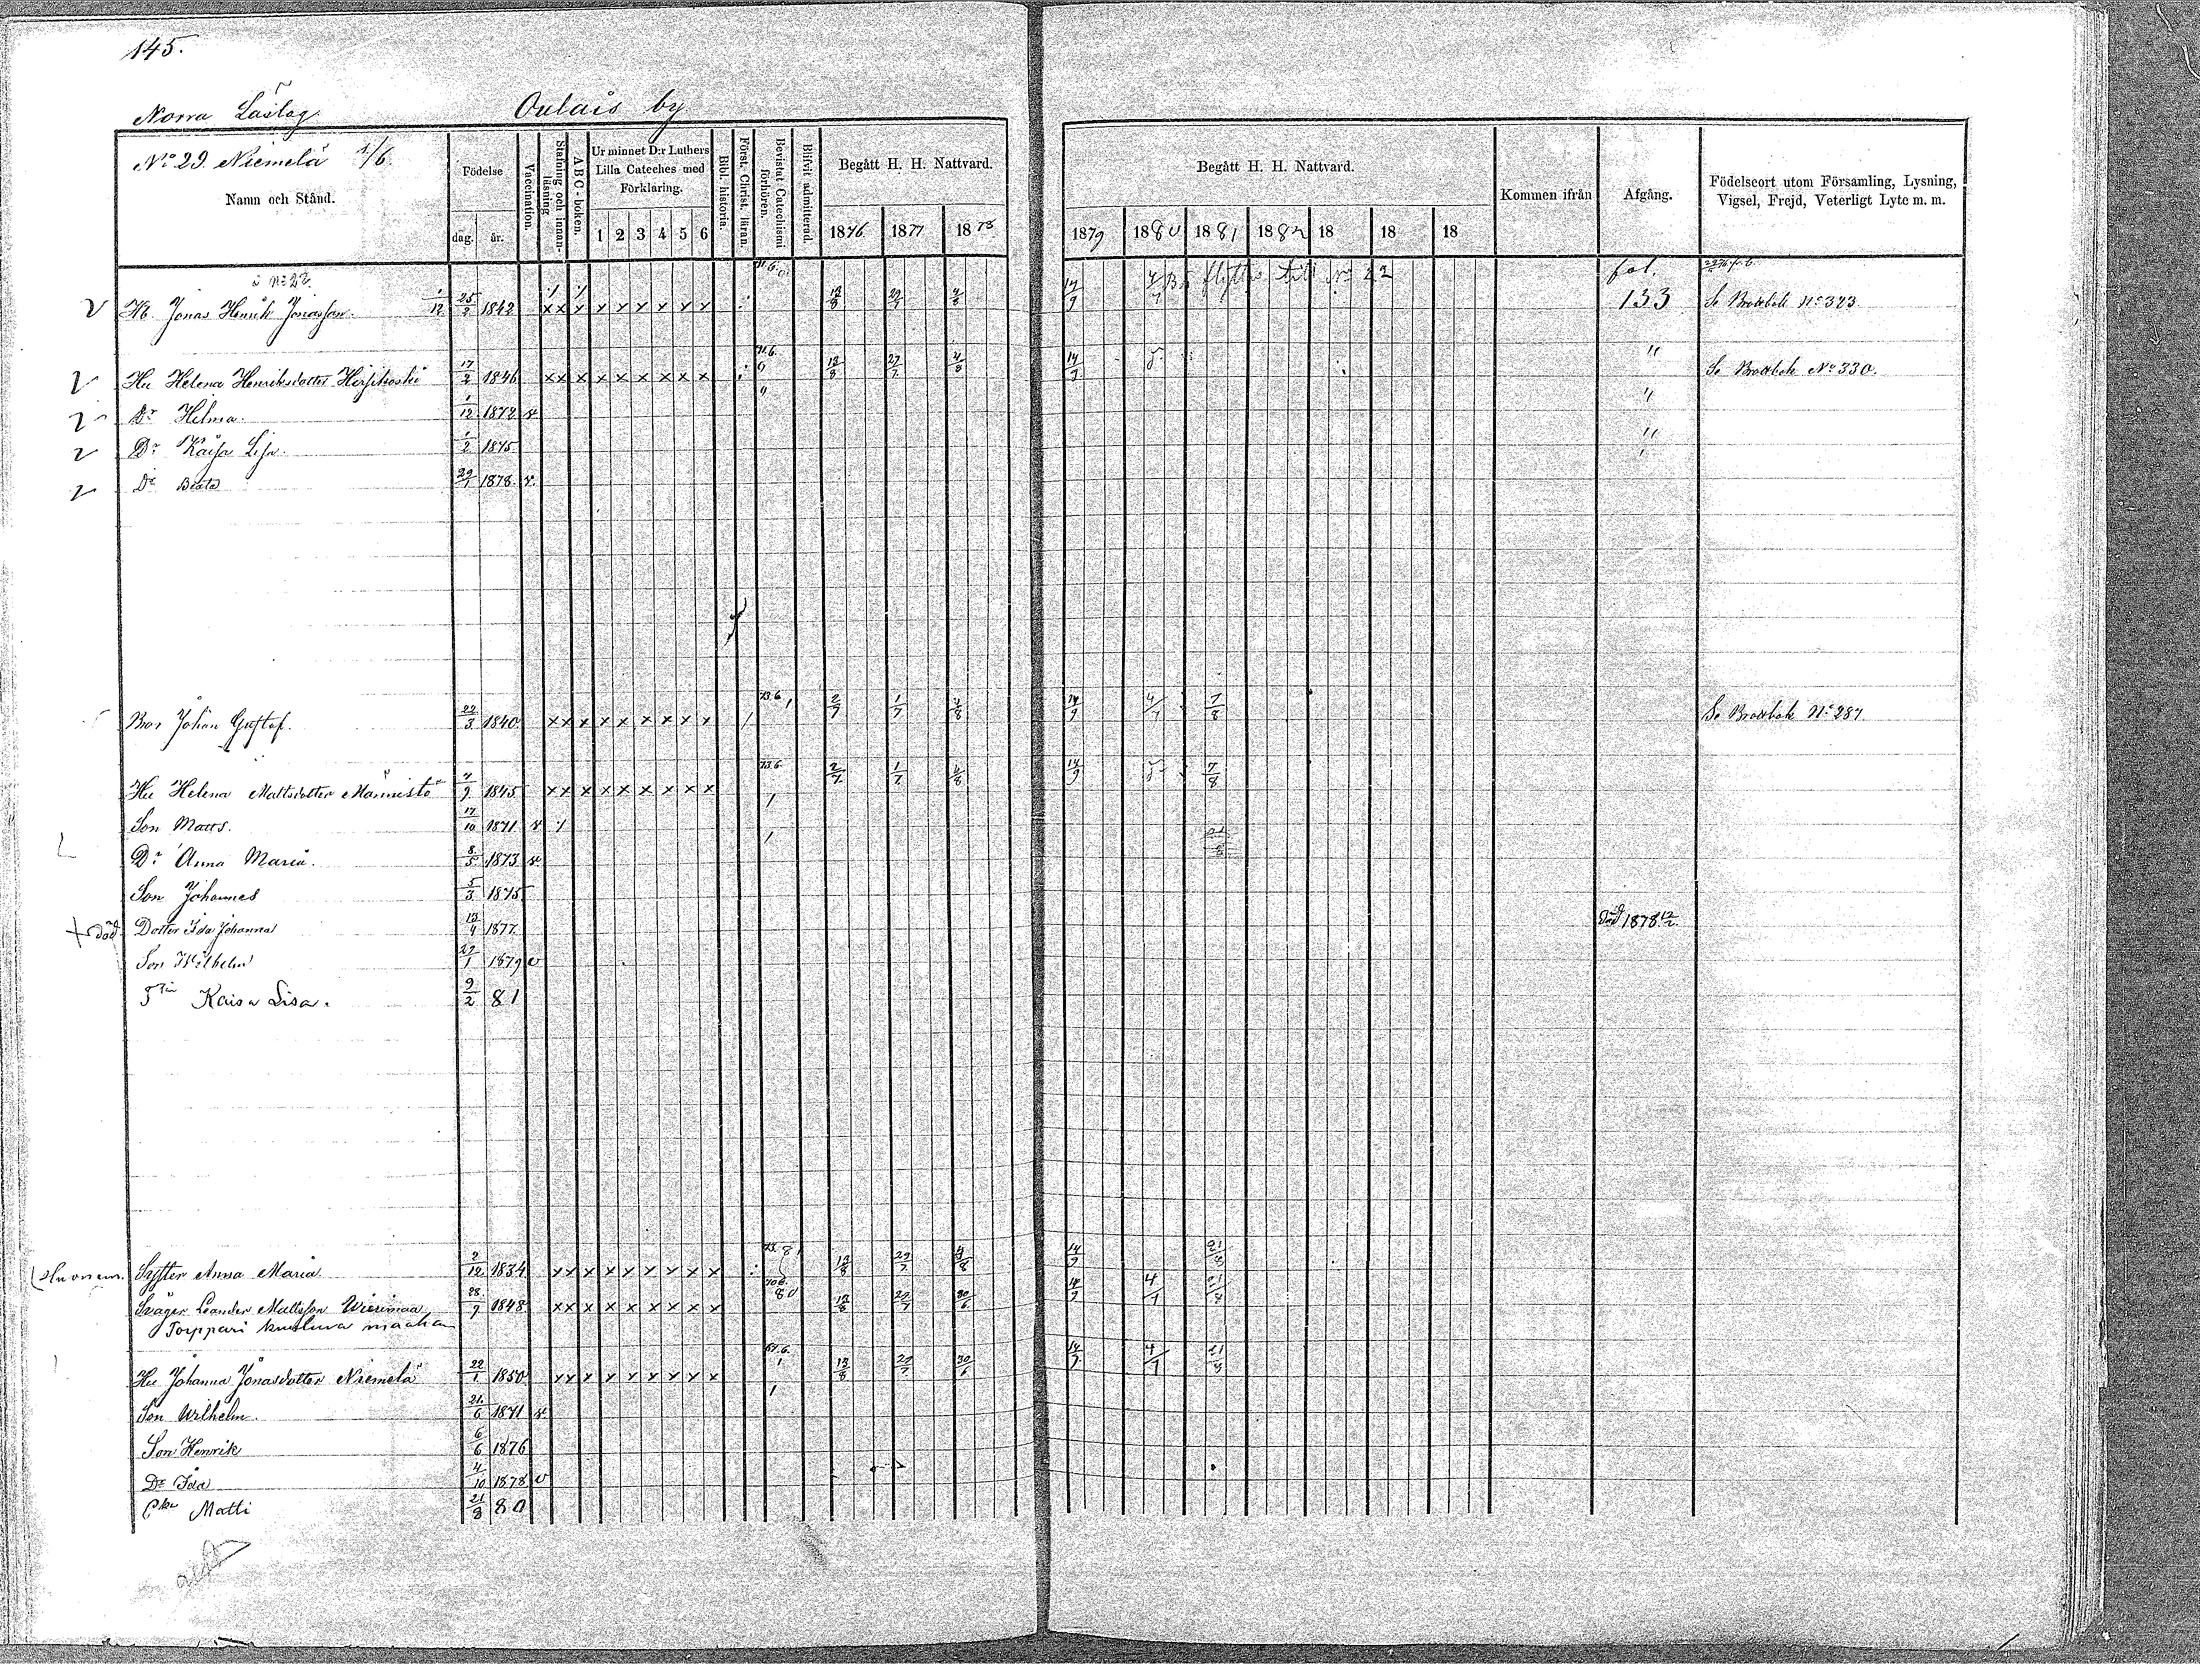 145.
Norra Läslag Oulais by
No 29. Niemelä 1/6
Namn och Stånd.
Födelse
dag. år.
Vaccination.
Stafning och innanläsning
A B C-boken.
Ur minnet D:r Luthers Lilla Cateches med Förklaring.
1 2 3 4 5 6
Bibl. historia.
Först. Christ. läran.
Bevistat Catechismi förhören.
Blifvit admitterad.
Begått H. H. Nattvard.
1876. 1877 1878
Begått H. H. Nattvard.
1879 1880 1881 1882 18 18 18
Kommen ifrån
Afgång.
Födelseort utom Församling, Lysning, Vigsel, Frejd, Veterligt Lyte m. m.
å No 22. flyttas till No 22 fol.
Jonas Henrik Jonasson. 1/12 25/2 1842 x x x x x x x x x 13/8 29/7 4/8 14/9 133 Se Brottbok No 323
Hu Helena Henriksdotter Hirsikoski 17/2 1846 x x x x x x x x x 13/8 27/7 4/8 14/9 " Se Brottbok No 330.
Dr Hilma. 1/12 1872 v "
Dr Kaisa Lisa. 1/2 1875 "
Dr Beata 29/1 1878 v.
Bror Johan Gustaf. 22/3 1840 x x x x x x x x x 2/7 1/7 4/8 14/9 4/7 7/8 Se Brottbok No 287.
Hu Helena Mattsdotter Männistö 7/9 1845 x x x x x x x x x 2/7 1/7 4/8 14/9 7/8
Son Matts. 17/10 1871 v
Dr Anna Maria. 8/5 1873 v.
Son Johannes 5/3 1875
död Dotter Ida Johanna 13/4 1877. Död 1878 12/2.
Son Wilhelm 29/1 1879 v
Kaisa Lisa. 9/2 81
Syster Anna Maria 2/12 1834 x x x x x x x x x 13/8 29/7 4/8 14/9 21/8
Svåger Leander Mattsson Wierimaa 28/9 1848 x x x x x x x x x 13/8 29/7 30/6 14/9 4/7 21/8
Torppari kuuluva maahan
Hu Johanna Jonasdotter Niemelä 22/1 1850 x x x x x x x x x 13/8 29/7 30/6 14/9 4/7 21/8
Son Wilhelm. 21/6 1871 v
Son Henrik 6/6 1876
Dr Ida 4/10 1878 v
Matti 21/8 80